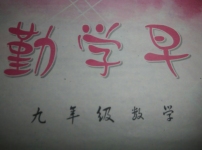 勤学早
九年级数学